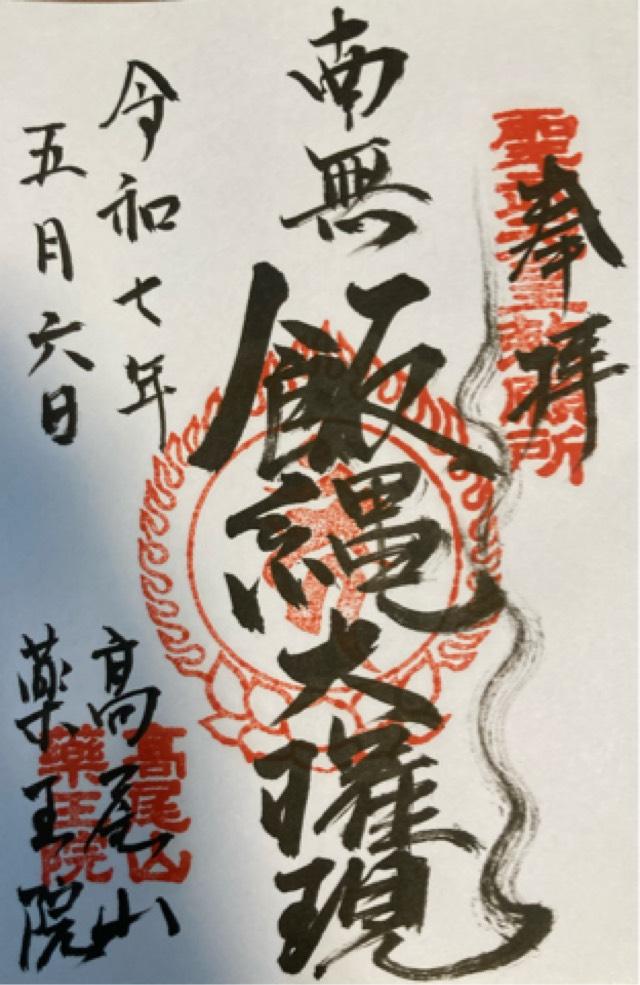 奉拝
聖武天皇勅願所
南無
飯縄大権現
令和七年
五月六日
高尾山
薬王院
高尾山
薬王院